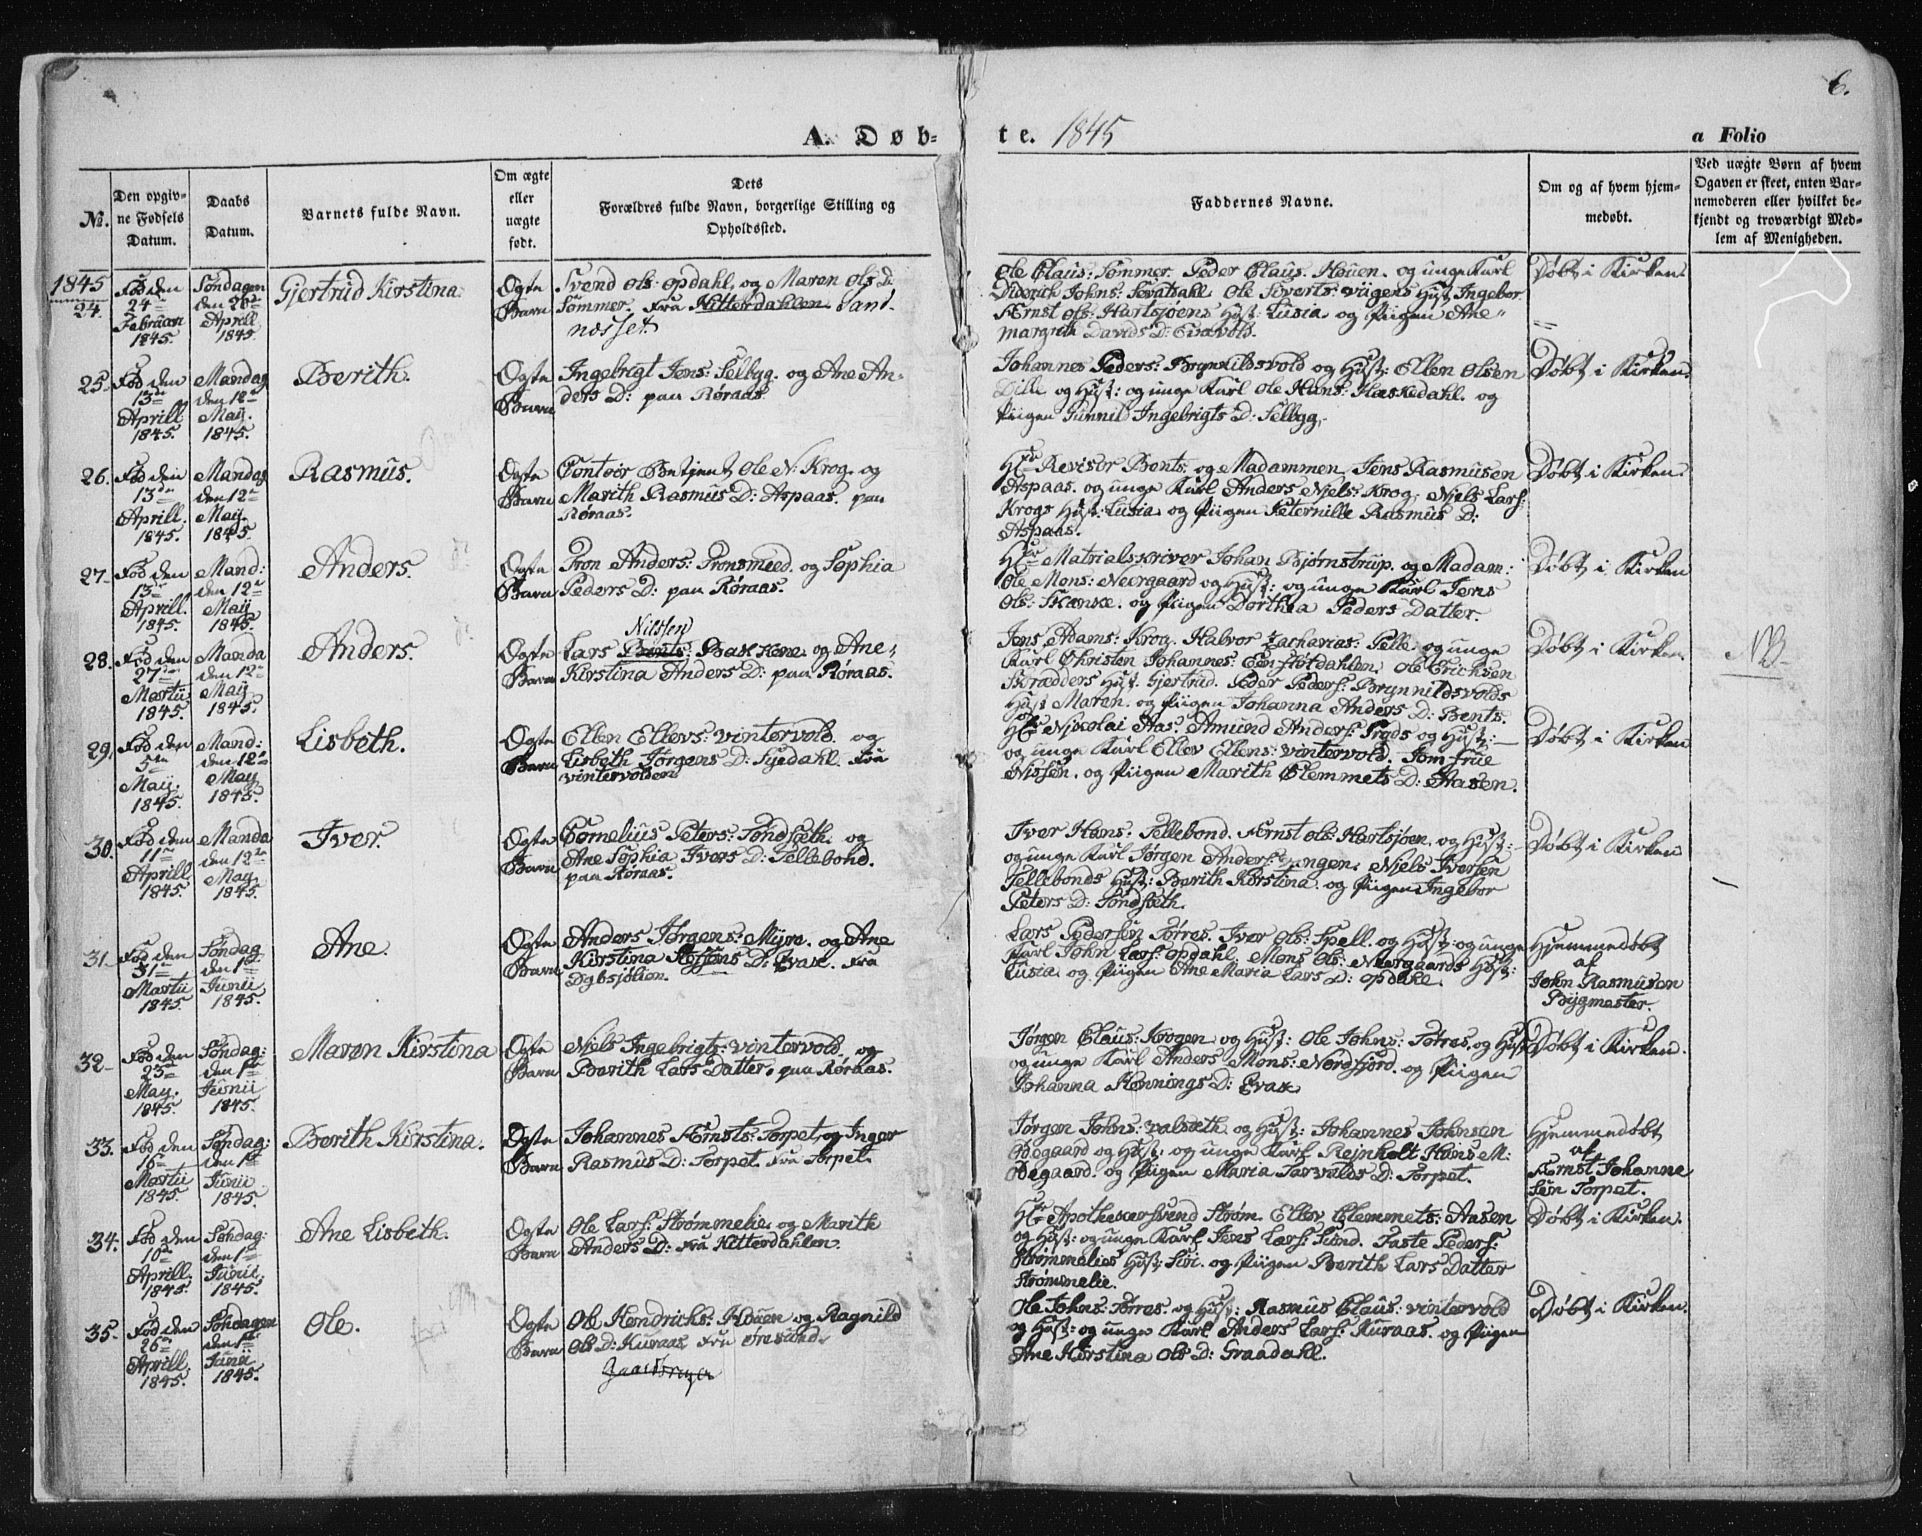 6.
A. Døb-
te. 1845
a Folio
No.
Den opgiv-
ne Fødsels
Datum.
Daabs
Datum.
Barnets fulde Navn.
Om ægte
eller
uægte
født.
Dets
Forældres fulde Navn, borgerlige Stilling og
Opholdssted.
Faddernes Navne.
Om og af hvem hjem-
medøbt.
Ved uægte Børn af hvem
Opgaven er skeet, enten Bar-
nemoderen eller hvilket be-
kjendt og troværdigt Med-
lem af Menigheden.
1845
24.
Fød den
24de
Februari
1845
Søndagen
den 20de
Aprill
1845.
Gjertrud Kirstina.
Ægte
Barn
Svend Ols: Opdahl. og Maren Ols D:
Sommer. fra Hitterdahlen Sant
nesset
Ole Claus: Sommer. Peder Claus: Houen. og unge Karl
Diderich Johns: Sevatdahl. Ole Siverts: Viigens Hust: Ingebor.
Ernst Ols: Hartsjøens Hust: Lusia. og Piigen Ane
margrete Davids D: Evavold.
Døbt i Kirken.
25.
Fød den
13de
Aprill
1845.
Mandag
den 12te
May.
1845.
Berith.
Ægte
Barn
Ingebrigt Jens: Selbyg. og Ane An-
ders D: paa Røraas.
Johannes Peders: Brynnildsvold og Hust: Ellen Olsen
Dille og Hust: og unge Karl Ole Hans: Haskedahl. og
Piigen Gunnild Ingebrigts D: Selbyg.
Døbt i Kirken.
26.
Fød den
13de
Aprill.
1845.
Mandag
den 12te
May.
1845.
Rasmus.
Ægte
Barn
Contoir Betjent Ole N: Krog. og
Marith Rasmus D: Aspaas. paa
Røraas.
Hr Revisor Bents: og Madammen. Jens Rasmusen
Aspaas. og unge Karl Anders Niels: Krog. Niels Lars:
Krogs Hust: Lusia. og Piigen Peternille Rasmus D:
Aspaas.
Døbt i Kirken.
27.
Fød den
13de
Aprill.
1845.
Mand:
den 12te
Maij
1845.
Anders.
Ægte
Barn
Tron Anders: Tronsmeed. og Sophia
Peders D: paa Røraas.
Hr Matrielskriver Johan Bjørnstrup. og Madam:
Ole Mons: Neergaard og Hust: og unge Karl Jens
Ols: Skanke. og Piigen Dorthea Peders Datter.
Døbt i Kirken
28.
Fød den
27de
Martii
1845.
Manda
den 12te
Maij
1845.
Anders.
Ægte
Barn
Nilssen
Lars Bents: Bakkene og Ane
Kirstina Anders D: paa Røraas.
Jens Adams: Krog. Halvor Zacharias: Selle og unge
Karl Christen Johannes: Gjenslotdahlen. Ole Erichsen
Skrædders Hust: Gjertrud. Peder Peders: Brynnildsvolds
Hust Maren. og Piigen Johanna Anders D: Bents.
Døbt i Kirken.
NB
29.
Fød den
5te
Maij:
1845.
Mand:
den 12te
May
1845.
Lisbeth.
Ægte
Barn
Ellen Ellevs: Vintervold. og
Lisbeth Jørgens D: Syedahl. fra
Vintervolden
Hr Nikolai Aas. Amund Anders: Trøds og Hust:
og unge Karl Ellev Ellens: Vintervold. Jomfrue
Nissen. og Piigen Marith Clemmets D: Aasen.
Døbt i Kirken
30.
Fød den
11te
Aprill
1845.
Manda
den 12te
May.
1845.
Iver.
Ægte
Barn
Cornelius Peters: Sundsæth. og
Ane Sophia Ivers D: Tellebond.
paa Røraas.
Iver Hans: Tellebond. Ernst Ols: Hartsjøen. og Hust:
og unge Karl Jørgen Anders: Langen. Niels Iversen
Tellebonds Hust: Berith Kirstina. og Piigen Ingebor
Peters D: Sundsæth.
Døbt i Kirken
31.
Fød den
31te
Martii
1845.
Søndag
den 1te
Junii
1845.
Ane.
Ægte
Barn
Anders Jørgens: Myra. og Ane
Kirstina D: Evak. fra
Dybsjølien.
Lars Pedersen Torres. Iver Ols: Spell. og Hust: og unge
Karl John Lars: Opdahl. Mons Ols: Neergaards Hust:
Lusia. og Piigen Ane Maria Lars D: Opdahl.
Hjemmedøbt
af
John Rasmusen
Bygmester.
32.
Fød den
23de
May.
1845.
Søndag:
den 1te
Junii
1845.
Maren Kirstina
Ægte
Barn
Niels Ingebrigts: Vintervold. og
Berith Lars Datter. paa Røraas.
Jørgen Claus: Krogen og Hust: Ole Johns: Torres. og Hust
og unge Karl Anders Mons: Nordfjord. og Piigen
Johanna Hennings D: Evak
Døbt i Kirken.
33.
Fød den
16de
Martii
1845.
Søndag:
den 1te
Junii
1845.
Berith Kirstina.
Ægte
Barn
Johannes Ernsts: Torpet. og Inger
Rasmus D: Torpet. fra Torpet.
Jørgen Johns: Valsæth og Hust: Johannes Johnsen
Ødegaard og Hust: og unge Karl Rejnholt Hans M:
Ødegaard. og Piigen Maria Torvalds D: Torpet.
Hjemmedøbt
af
Ernst Johanne
sen Torpet.
34.
Fød den
10de
Aprill
1845.
Søndag:
den 1te
Junii.
1845.
Ane Lisbeth.
Ægte
Barn
Ole Lars: Strømmelie. og Marith
Anders D: fra Hitterdahlen.
Hr Apotheker Svend Strøm. Ellev Clemmets: Aasen
og Hust: og unge Karl Jens Lars: Sund. Taste Peders:
Strømmelies Hust: Siri. og Piigen Berith Lars Datter
Strømmelie.
Døbt i Kirken.
35.
Fød den
26de
Aprill
1845.
Søndagen
den 1te
Junii
1845.
Ole.
Ægte
Barn
Ole Hendrichs: Houen og Ragnild
Ols D: Kuraas fra Øresund.
Ole Johns: Torres. og Hust: Rasmus Claus: Vintervold
og Hust: og unge Karl Anders Lars: Kuraas. og Piigen
Ane Kirstina Ols D: Graadahl.
Døbt i Kirken.